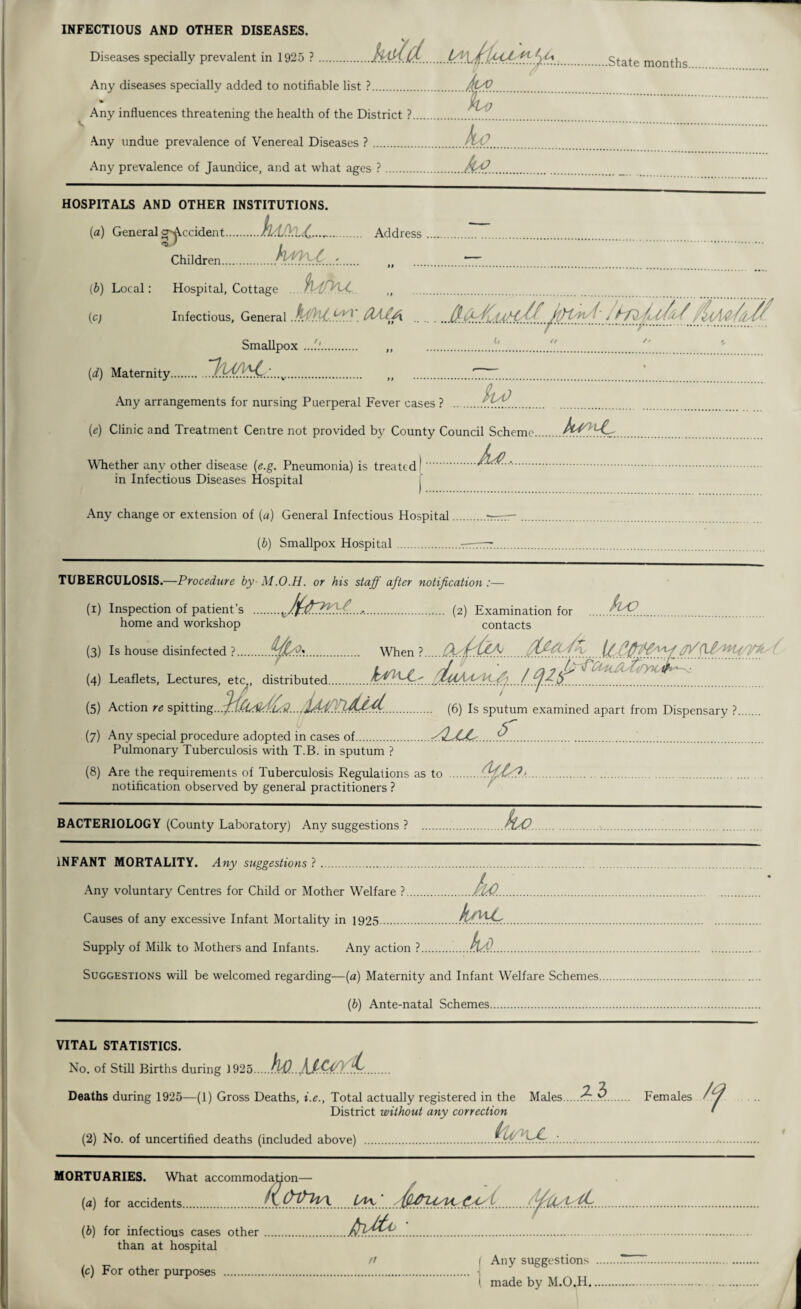 INFECTIOUS AND OTHER DISEASES.
Diseases specially prevalent in 1925 ? mild influenza State months
Any diseases specially added to notifiable list ? no
Any influences threatening the health of the District ? no
Any undue prevalence of Venereal Diseases ? no
Any prevalence of Jaundice, and at what ages ? no
HOSPITALS AND OTHER INSTITUTIONS.
(a) General or Accident none Address —
Children none „ —
(b) Local : Hospital, Cottage none „
(c) Infectious, General none in area Oakwell joint hospital
Smallpox " „ " " "
(d) Maternity none „ —
Any arrangements for nursing Puerperal Fever cases ? no
(e) Clinic and Treatment Centre not provided by County Council Scheme none
Whether any other disease (e.g. Pneumonia) is treated no
in Infectious Diseases Hospital
Any change or extension of (a) General Infectious Hospital —
(b) Smallpox Hospital —
TUBERCULOSIS.—Procedure by M.O.H. or his staff after notification :—
(1) Inspection of patient's home (2) Examination for no
home and workshop contacts
(3) Is house disinfected ? yes When ? After death
(4) Leaflets, Lectures, etc., distributed none during 1925
(5) Action re spitting (6) Is sputum examined apart from Dispensary ?
(7) Any special procedure adopted in cases of see 5
Pulmonary Tuberculosis with T.B. in sputum ?
(8) Are the requirements of Tuberculosis Regulations as to yes
notification observed by general practitioners ?
BACTERIOLOGY (County Laboratory) Any suggestions ? no
INFANT MORTALITY. Any suggestions ?
Any voluntary Centres for Child or Mother Welfare ? no
Causes of any excessive Infant Mortality in 1925 none
Supply of Milk to Mothers and Infants. Any action ? no
SUGGESTIONS will be welcomed regarding—(a) Maternity and Infant Welfare Schemes
(b) Ante-natal Schemes
VITAL STATISTICS.
No. of Still Births during 1925 no record
Deaths during 1925—(1) Gross Deaths, i.e., Total actually registered in the Males 23 Females 19
District without any correction
(2) No. of uncertified deaths (included above) none
MORTUARIES. What accommodation—
(a) for accidents Room in Council Yard
(b) for infectious cases other ditto
than at hospital
(c) For other purposes " Any suggestions —
made by M.O.H.